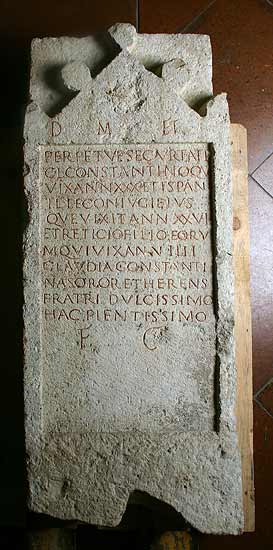 D M ET
PERPETVE SECVRITATI
GL CONSTANTINO Q
VIXANNXXXETISPAN
TETECONIVGIEIVS
QVEVIXITANNXXVI
ETRETICIOFILIOEORV
MQVIVIXANNIIII
CLAVDIACONSTANTI
NASORORETHERENS
FRATRI DVLCISSIMO
HAC PIENTISSIMO
F C